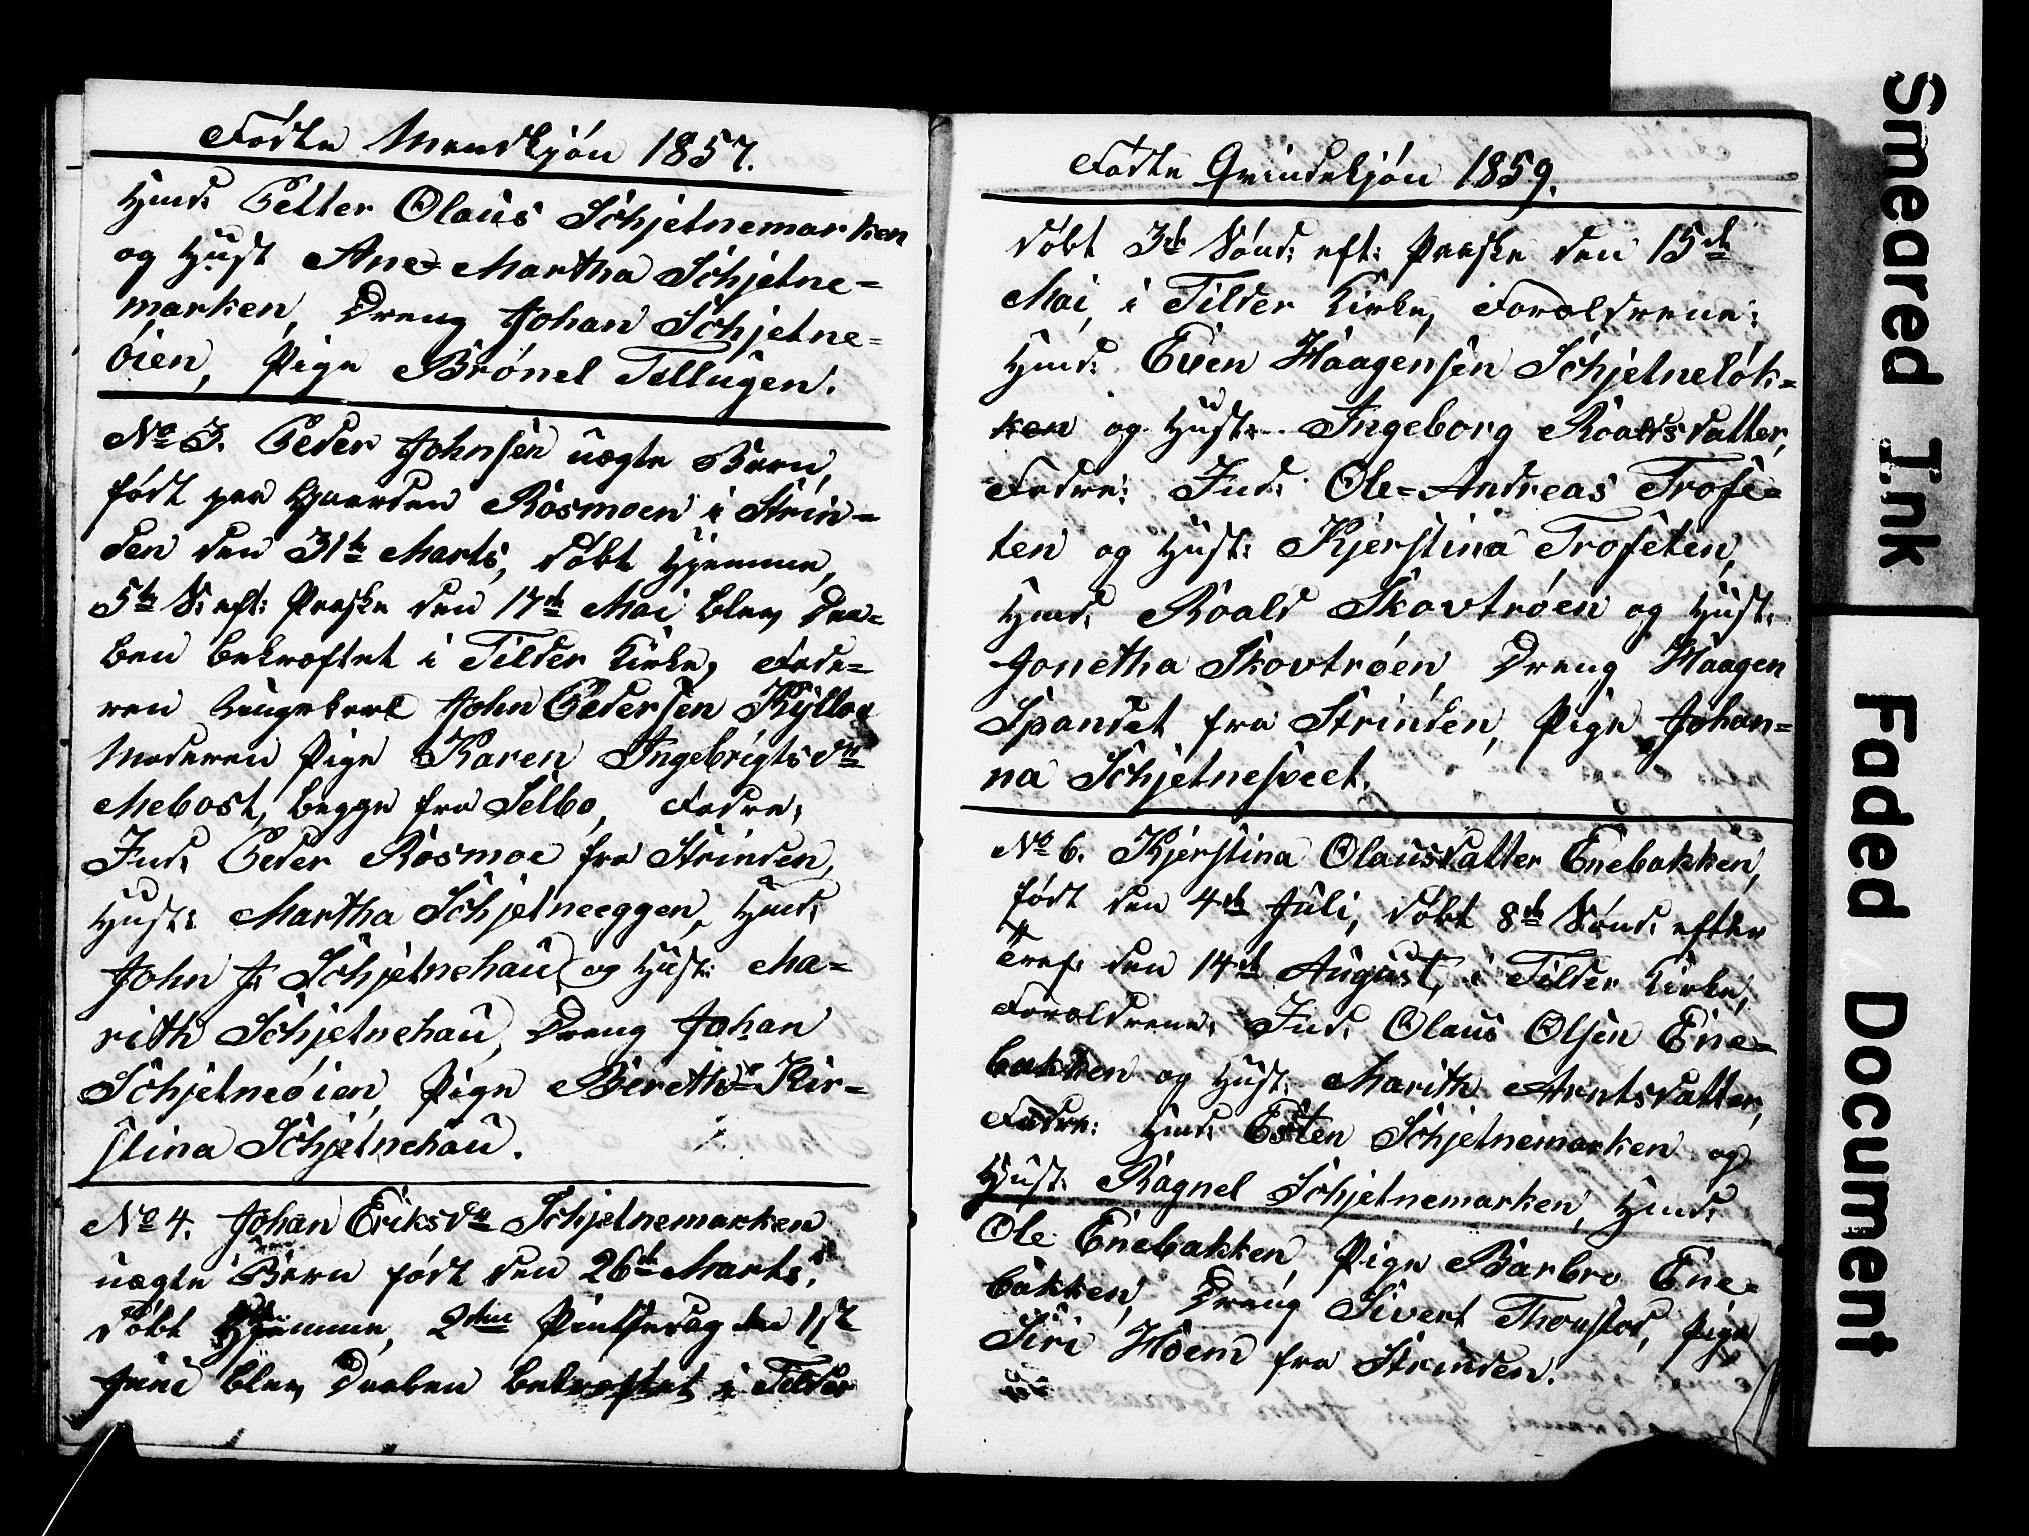 Fødte Mandkjøn 1857.
Hmd: Petter Olaus Schjetnemarken
og Hust Ane Martha Schjetne=
marken, Dreng Johan Schjetne=
øien, Pige Brønel Tellugen.
No 3. Peder Johnsen uægte Barn,
født paa Gaarden Rosmoen i Strin=
den den 31te Marts, døbt Hjemme,
5te S: eft: Paaske den 17de Mai blev Daa=
ben bekræftet i Tilder Kirke, Fade=
ren Ungekarl John Pedersen Kylloe
Moderen Pige Karen Ingebrigtsdr
Mebost, begge fra Selbo, Fadre:
Ind: Peder Rosmoe fra Strinden,
Hust: Martha Schjetneeggen, Hmd:
John J: Schjetnehau og Hust: Ma=
rith Schjetnehau, Dreng Johan
Schjetneøien, Pige Bereth=Kir=
stina Schjetnehau.
No 4. Johan Eriksdr Schjetnemarken
uægte Barn født den 26de Marts,
døbt Hjemme, 2den Pintsedag den 1ste
Juni blev Daaben bekræftet i Tilder
Fødte Qvindekjøn 1859.
døbt 3de Sønd: eft: Paaske den 15de
Mai, i Tilder Kirke, Forældrene:
Hmd: Even Haagensen Schjetneløk=
ken og Hust: Ingeborg Roaldsdatter,
Fadre: Ind: Ole=Andreas Trofe=
ten og Hust: Kjerstina Trofeten,
Hmd: Roald Skovtrøen og Hust:
Jonetha Skovtrøen, Dreng Haagen
Spandet fra Strinden, Pige Johan=
na Schjetnesveet.
No 6. Kjerstina Olausdatter Enebakken,
født den 4de Juli, døbt 8de Sønd: efter
Tref: den 14de August, i Tilder Kirke,
Forældrene: Ind: Olaus Olsen Ene=
bakken og Hust: Marith Arntsdatter,
Fadre: Hmd: Esten Schjetnemarken og
Hust: Ragnel Schjetnemarken, Hmd:
Ole Enebakken, Pige Barbro Ene=
bakken, Dreng Sivert Thonstad, Pige
Siri Hoem fra Strinden.
Smeared Ink
Faded Document